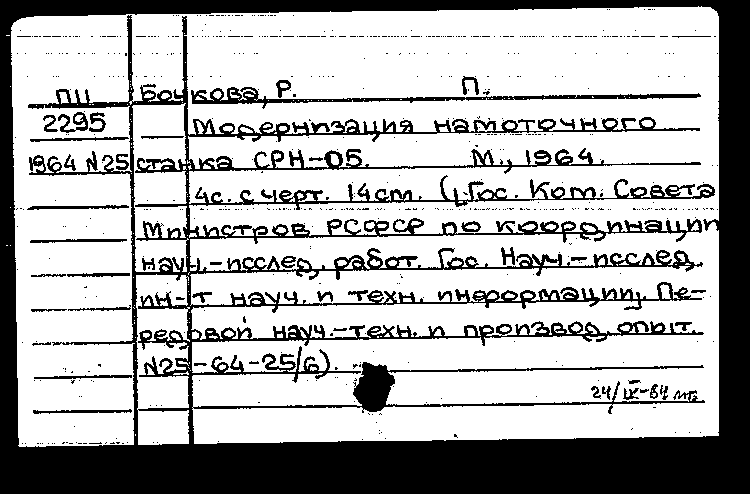 ПЦ Бочкова, Р. П.
2295 Модернизация намоточного
1964 N25 станка СРН-05. М., 1964.
4с. с черт. 14см. (Гос. Ком. Совета
Министров РСФСР по координации
науч.-исслед. работ. Гос. Науч.-исслед.
ин-т науч. и техн. информации. Пе-
редовой науч.-техн. и производ. опыт.
N25-64-25/6).
24/IX-64